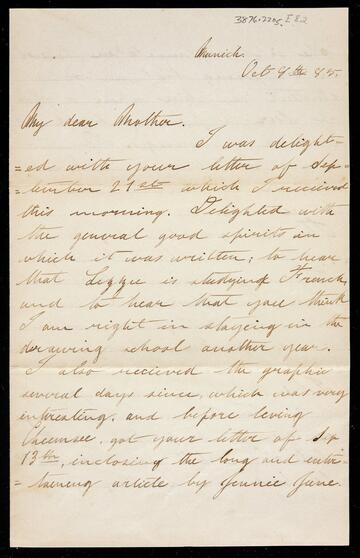 3876.2205. E 82
Munich.
Oct 9th 85.
My dear Mother.
I was delight-
=ed with your letter of Sep-
=tember 21st which I received
this morning. Delighted with
the general good spirits in
which it was written; to hear
that Lizzie is studying French,
and to hear that you think
I am right in staying in the
drawing school another year.
I also recieved the graphic
several days since, which was very
intresting, and before leving
Cheimsee, got your letter of Sep
13th, inclosing the long and entir-
=taining article by Jennie June.